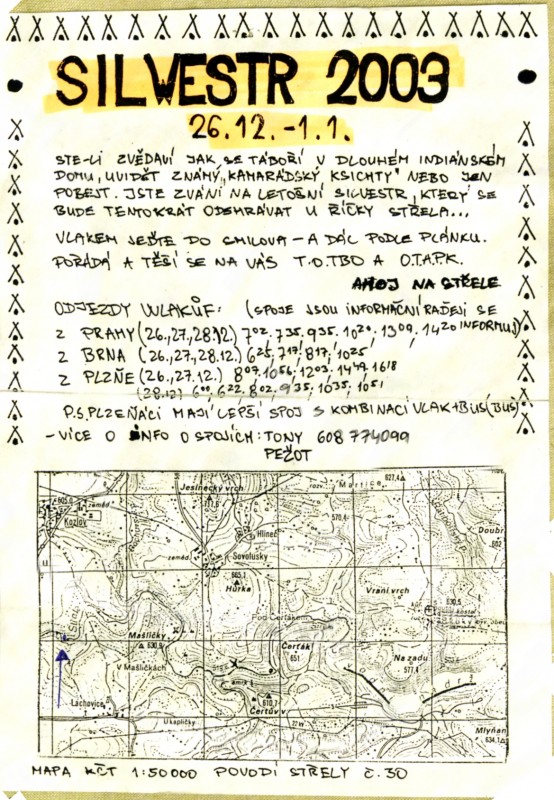 SILVESTR 2003
26.12. - 1.1.
STE-LI ZVĚDAVÍ JAK SE TÁBOŘÍ V DLOUHÉM INDIÁNSKÉM
DOMU, UVIDĚT ZNÁMÝ „KAMARÁDSKÝ KSICHTY" NEBO JEN
POBEJT. JSTE ZVÁNI NA LETOŠNÍ SILVESTR, KTERÝ SE
BUDE TENTOKRÁT ODEHRÁVAT U ŘÍČKY STŘELA...
VLAKEM JEĎTE DO SMILOVA - A DÁL PODLE PLÁNKU.
POŘÁDÁ A TĚŠÍ SE NA VÁS T.O.TBO A O.T.A.P.K.
AHOJ NA STŘELE
ODJEZDY WLAKŮF: (SPOJE JSOU INFORMAČNÍ RADĚJI SE
Z PRAHY (26.,27.,28.12.) 7 02, 7 35, 9 35, 10 20, 13 09, 14 20 INFORMUJ)
Z BRNA (26.,27.,28.12.) 6 25, 7 17, 8 17, 10 25
Z PLZŇE (26.,27.12.) 8 07, 10 56, 12 03, 14 49, 16 18
(28.12) 6 00, 6 22, 8 02, 9 35, 10 35, 10 51
P.S. PLZEŇÁCI MAJÍ LEPŠÍ SPOJ S KOMBINACÍ VLAK+BUS (BUŠ)
- VÍCE O INFO O SPOJÍCH: TONY 608 774099
PEŽOT
Martice
627,4
Jesínecký vrch
605,0
Kozlov
zeměd.
570,4
Doubí
Hlinec
Sovolusky
zeměd.
665,1
Hůrka
Vraní vrch
630,5
Pod Čertákem
Mašličky
630,9
Čerťák
651
Na zadu
577,4
V Mašličkách
Lachovice
610,7
Čertův v.
U kapličky
Mlyňan
634,1
MAPA KČT 1:50 000 POVODÍ STŘELY č. 30